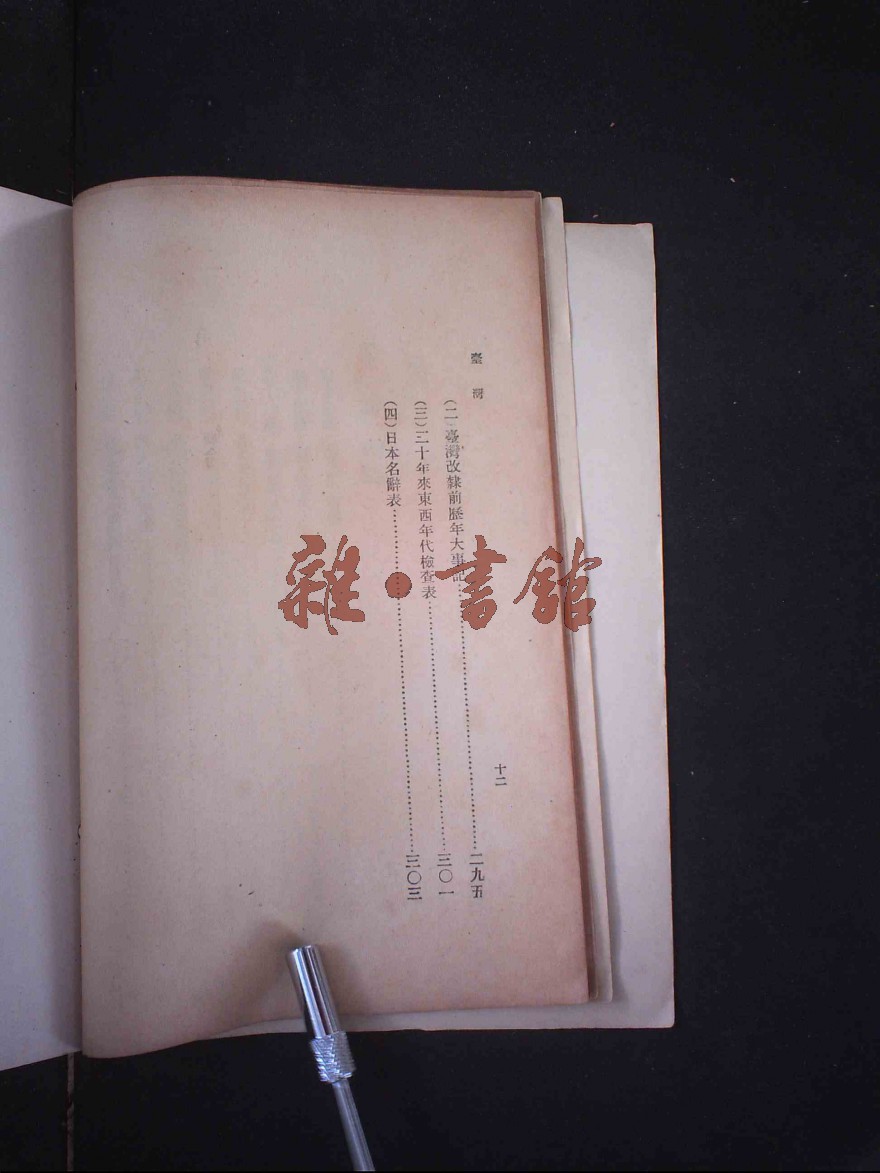 臺灣
(二)臺灣改隸前歷年大事記……二九五
(三)三十年來東西年代檢查表……三〇一
(四)日本名辭表……三〇三
十二
雜·書館